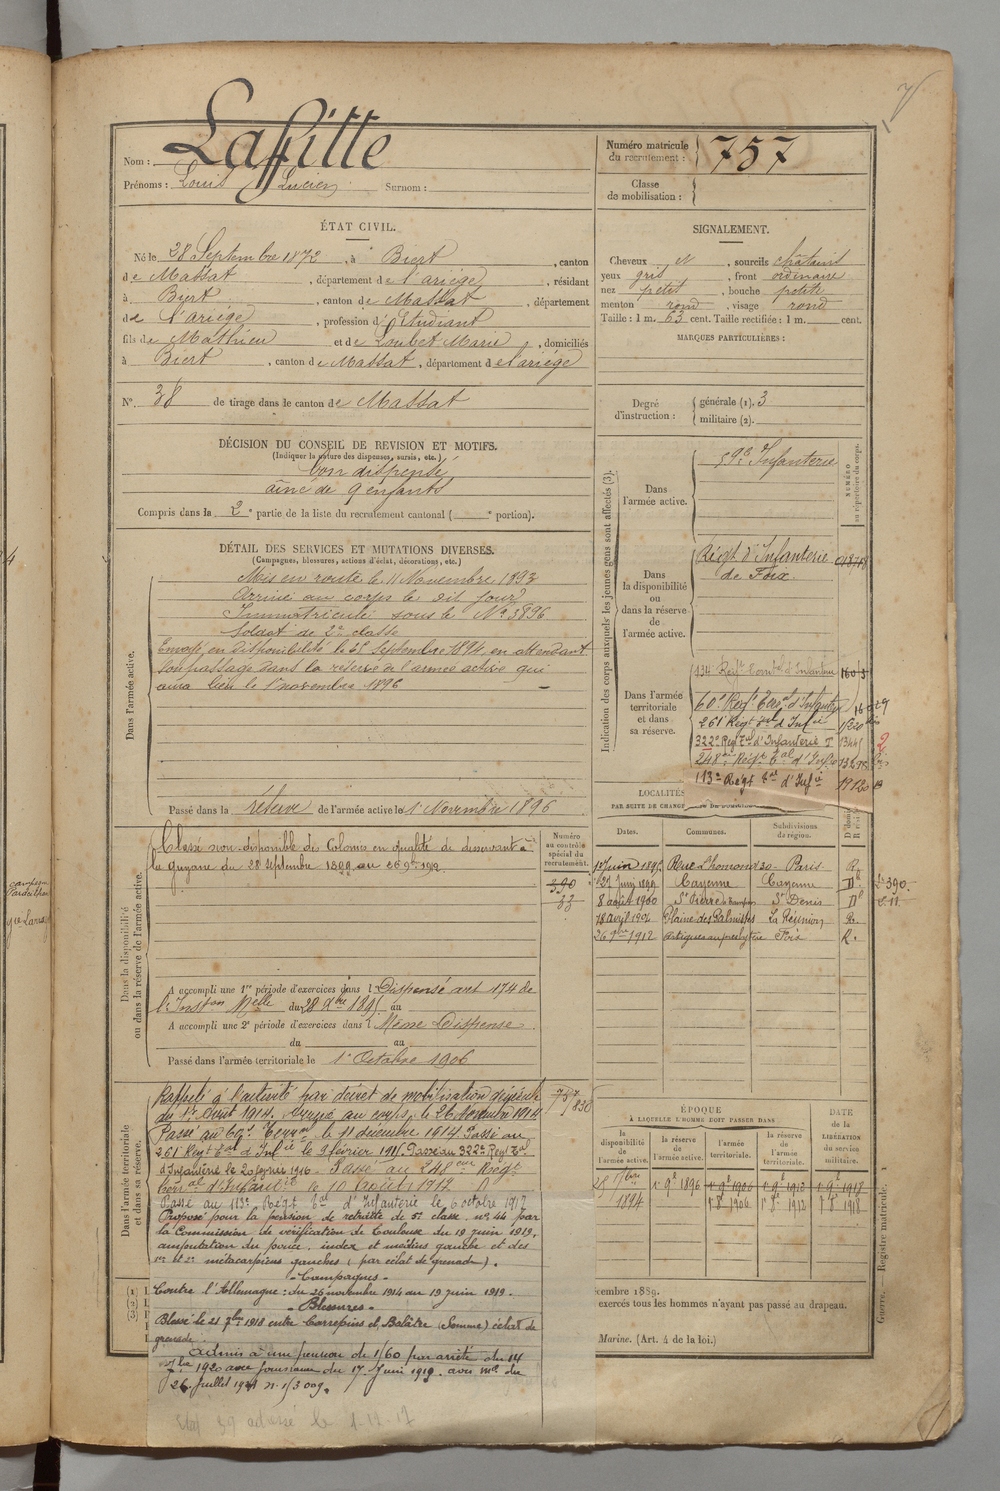 Nom : Lafitte
Prénoms : Louis Lucien Surnom :
Numéro matricule du recrutement : 757
Classe de mobilisation :
ÉTAT CIVIL.
Né le 28 Septembre 1872, à Biert, canton
de Massat, département de l'ariège, résidant
à Byrt, canton de Massat, département
de l'ariège, profession d'Etudiant
fils de Mathieu et de Loubet Marie, domiciliés
à Biert, canton de Massat, département de l'ariège
N° 38 de tirage dans le canton de Massat
SIGNALEMENT.
Cheveux N, sourcils châtains
yeux gris, front ordinaire
nez petit, bouche petite
menton rond, visage rond
Taille : 1 m. 63 cent. Taille rectifiée : 1 m. cent.
MARQUES PARTICULIÈRES :
Degré d'instruction : générale (1). 3
militaire (2).
DÉCISION DU CONSEIL DE REVISION ET MOTIFS.
(Indiquer la nature des dispenses, sursis, etc.)
bon dispensé
aîné de 9 enfants
Compris dans la 2e partie de la liste du recrutement cantonal ( e portion).
DÉTAIL DES SERVICES ET MUTATIONS DIVERSES.
(Campagnes, blessures, actions d'éclat, décorations, etc.)
Dans l'armée active.
Mis en route le 11 Novembre 1893
Arrivé au corps le dit jour
Immatriculé sous le N° 3896
Soldat de 2e classe
Envoyé en disponibilité le 25 Septembre 1894 en attendant
son passage dans la réserve de l'armée active qui
aura lieu le 1er novembre 1896
Passé dans la réserve de l'armée active le 1er Novembre 1896
Indication des corps auxquels les jeunes gens sont affectés (3).
NUMÉRO au répertoire du corps.
Dans l'armée active.
59e Infanterie
Dans la disponibilité ou dans la réserve de l'armée active.
Régt d'Infanterie
de Foix
Dans l'armée territoriale et dans sa réserve.
134 Regt Territal d'Infanterie
60e Regt Terral d'Infantie
261 Régt tal d'Infie
322e Regt Tal d'Infanterie
248me Régt tal d'Infie
113e Régt tal d'Infie
Dans la disponibilité ou dans la réserve de l'armée active.
Classé non-disponible des Colonies en qualité de desservant à
la guyane du 28 septembre 1899 au
Numéro au contrôle spécial du recrutement.
390
33
A accompli une 1re période d'exercices dans l Dispensé art 174 de
l'Inston Melle du 28 Xbre 1895 au
A accompli une 2e période d'exercices dans l Même Dispense
du au
Passé dans l'armée territoriale le 1er Octobre 1906
LOCALITÉS
PAR SUITE DE CHANG
Dates. Communes. Subdivisions de région.
Juin 189 Rue Lhomond 30 - Paris R
21 Juin 1899 Cayenne Cayenne D
8 août 1900 St Pierre St Denis D
18 avril 1906 Plaine des Palmistes La Réunion R.
26 9bre 1912 Artigues au presbytère Foix R.
Dans l'armée territoriale et dans sa réserve.
Rappelé à l'activité par décret de mobilisation générale
du 1er Août 1914. Arrivé au corps, le 26 Novembre 1914
Passé au 60e Terral le 11 décembre 1914 Passé au
261 Régt tal d'Infie le 9 février 1916. Passé au 322e Regt Tal
d'Infanterie le 20 février 1916. Passé au 248me Régt
territal d'Infanterie le 10 août 1917
Passé au 113e Régt tal d'Infanterie le 6 octobre 1917
Proposé pour la pension de retraite de 5e classe. n° 44 par
la Commission de vérification de Toulouse du 19 juin 1919.
amputation du pouce, index et médius gauche et des
1er et 2e métacarpiens gauches (par éclat de grenade).
- Campagnes -
Contre l'Allemagne : du 26 novembre 1914 au 19 juin 1919.
- Blessures -
Blessé le 21 7bre 1918 entre (Somme) éclat de
grenade.
Admis à une pension de 1760 par arrêté du 14
1920 avec jouissance du 17 Juin 1919. avis mel du
26 Juillet 1921 n. 1/3009.
Etat 39 adressé le 1-12-17
ÉPOQUE
À LAQUELLE L'HOMME DOIT PASSER DANS
la disponibilité de l'armée active. la réserve de l'armée active. l'armée territoriale. la réserve de l'armée territoriale.
DATE DE LA LIBÉRATION du service militaire.
1894 1er 9bre 1896 1er 9bre 1906 1er 9bre 1912 1er 9bre 1918
1er 8bre 1906 1er 8bre 1912 1er 8bre 1918
cembre 1889.
exercés tous les hommes n'ayant pas passé au drapeau.
Marine. (Art. 4 de la loi.)
Guerre. — Registre matricule. 1